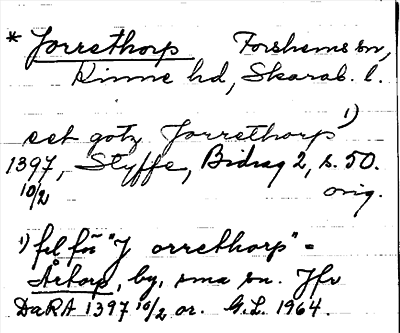 * Jorrethorp Forshems sn,
Kinne hd, Skarab. l.
set gotz Jorrethorp 1)
1397, Styffe, Bidrag 2, s. 50.
10/2 orig.
1) fel för "J orrethorp" =
Årtorp, by, sma sn. Jfr
DaRA 1397 10/2 or. G.L. 1964.